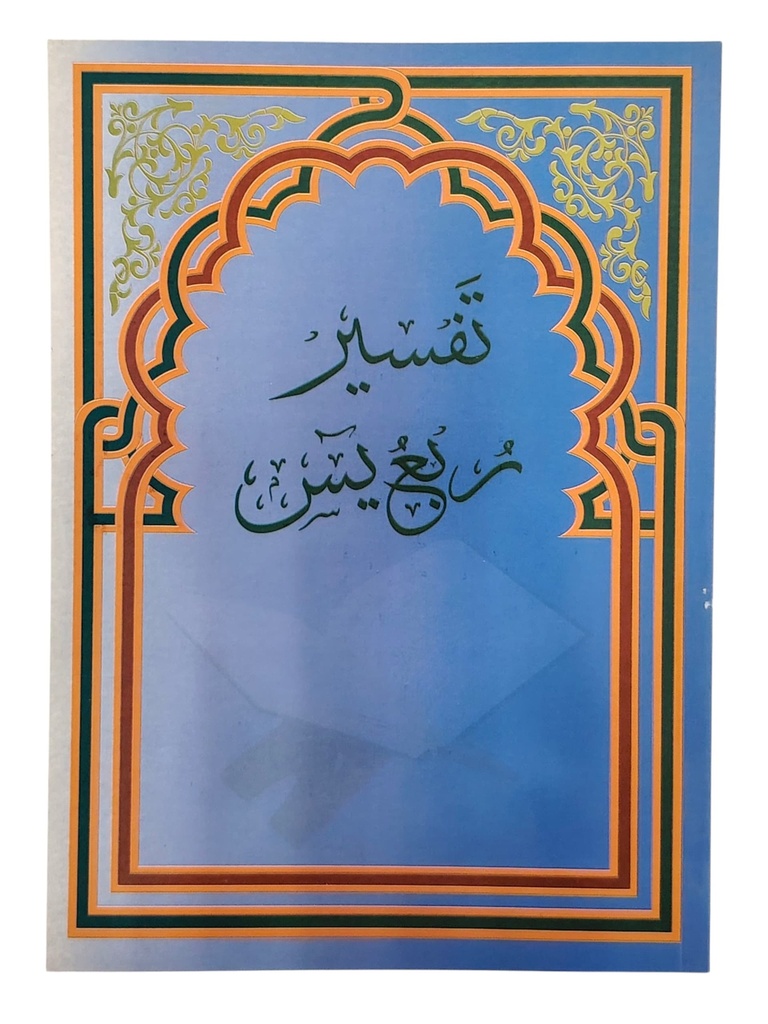 تَفسير
رُبعُ يٓس